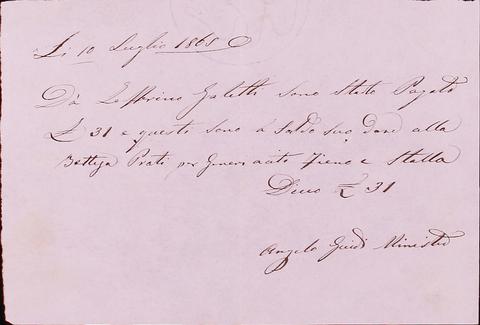 Li 10 Luglio 1868
Da Zeffirino Galetti sono stato Pagato
£ 31 e questi sono a Saldo suo dare alla
Bottega Prati per Generi Fieno e Stalla
Dico £ 31
Angelo Guidi Ministro